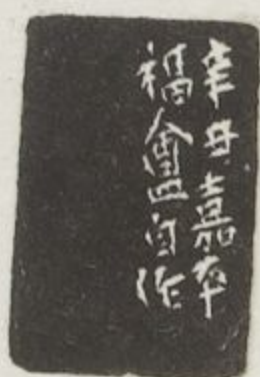 辛丑嘉平
福盦自作